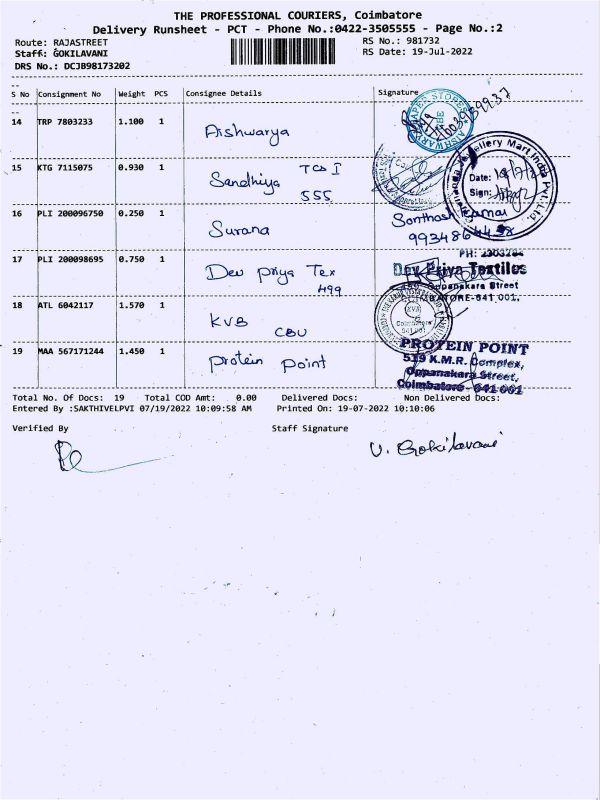 THE PROFESSIONAL COURIERS, Coimbatore
Delivery Runsheet - PCT - Phone No.:0422-3505555 - Page No.:2
Route: RAJASTREET
RS No.: 981732
Staff: GOKILAVANI
RS Date: 19-Jul-2022
DRS No.: DCJB98173202
S No Consignment No Weight PCS Consignee Details Signature
14 TRP 7803233 1.100 1 Aishwarya
15 KTG 7115075 0.930 1 Sandhiya TCS I
555
Date:
Sign:
16 PLI 200096750 0.250 1 Surana
17 PLI 200098695 0.750 1 Dev Priya Tex
499
Dev Priya Textiles
Oppanakara Street
COIMBATORE-641 001.
18 ATL 6042117 1.570 1 KVB
CBU
Coimbatore
641 001
19 MAA 567171244 1.450 1 Protein Point
PROTEIN POINT
519 K.M.R. Complex,
Oppanakara Street,
Coimbatore - 641 001
Total No. Of Docs: 19 Total COD Amt: 0.00 Delivered Docs: Non Delivered Docs:
Entered By :SAKTHIVELPVI 07/19/2022 10:09:58 AM Printed On: 19-07-2022 10:10:06
Verified By Staff Signature
V. Gokilavani